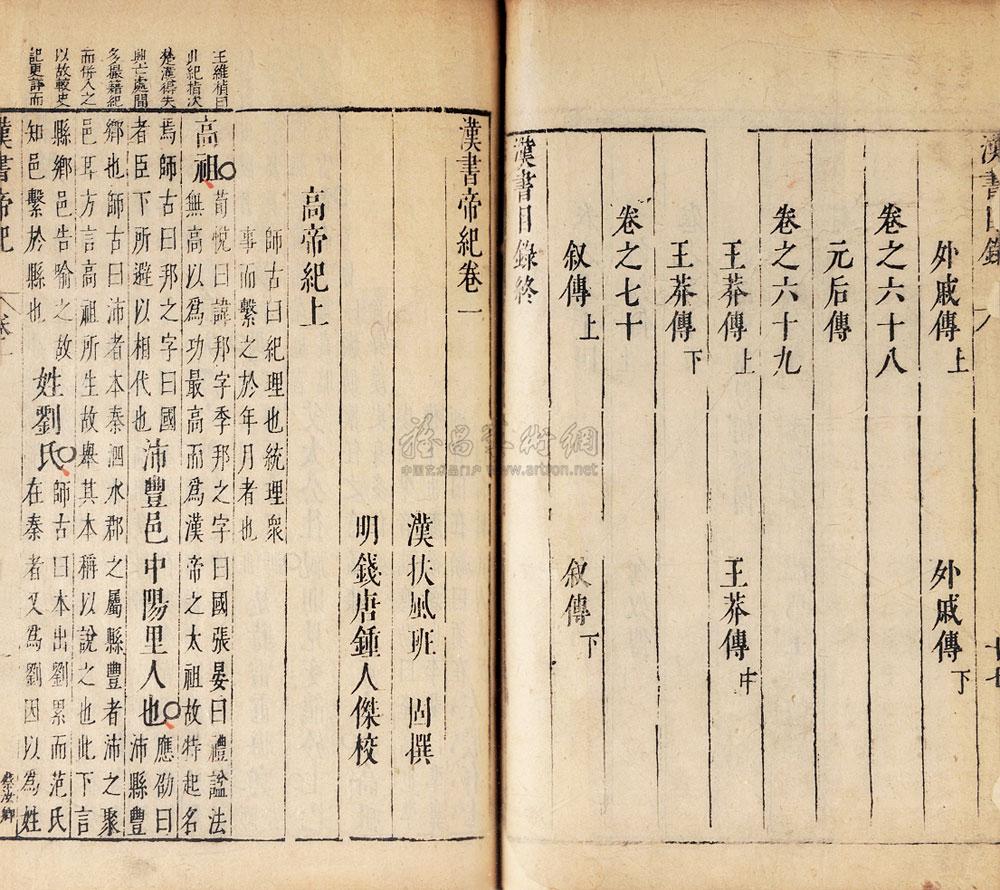 漢書目錄
十七
外戚傳上 外戚傳下
卷之六十八
元后傳
卷之六十九
王莽傳上 王莽傳中
王莽傳下
卷之七十
叙傳上 叙傳下
漢書目錄終
漢書帝紀卷一
漢扶風班 固撰
明錢唐鍾人傑校
高帝紀上
師古曰紀理也統理衆
事而繫之於年月者也
王維楨曰
楚漢得失
興亡處間
多撮藉紀
而併入之
以故較史
記更詳而
高祖 荀悅曰諱邦字季邦之字曰國張晏曰禮諡法
無高以爲功最高而爲漢帝之太祖故特起名
焉師古曰邦之字曰國
者臣下所避以相代也 沛豐邑中陽里人也 應劭曰
沛縣豐
鄉也師古曰沛者本秦泗水郡之屬縣豐者沛之聚
邑耳方言高祖所生故舉其本稱以說之也此下言
縣鄉邑告喻之故
知邑繫於縣也 姓劉氏 師古曰本出劉累而范氏
在秦者又爲劉因以爲姓
漢書帝紀
卷一
雅昌藝術網
中国艺术品门户 www.artron.net